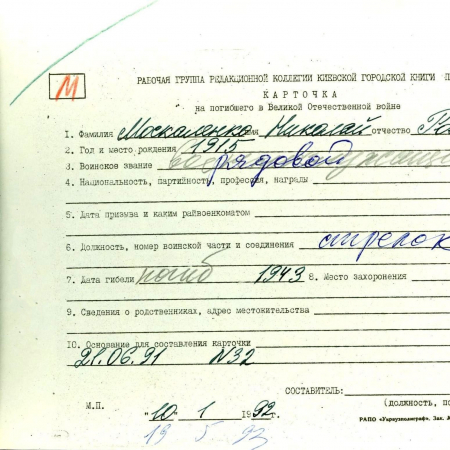 М
РАБОЧАЯ ГРУППА РЕДАКЦИОННОЙ КОЛЛЕГИИ КИЕВСКОЙ ГОРОДСКОЙ КНИГИ
КАРТОЧКА
на погибшего в Великой Отечественной войне
1. Фамилия Москаленко имя Николай отчество
2. Год и место рождения 1915
3. Воинское звание рядовой
4. Национальность, партийность, профессия, награды
5. Дата призыва и каким райвоенкоматом
6. Должность, номер воинской части и соединения стрелок
7. Дата гибели погиб 1943 8. Место захоронения
9. Сведения о родственниках, адрес местожительства
10. Основание для составления карточки
21.06.91 N32
СОСТАВИТЕЛЬ:
М.П. "10" 1 1992 (должность, по
РАПО «Укрвузполиграф». Зак.
19 5 93